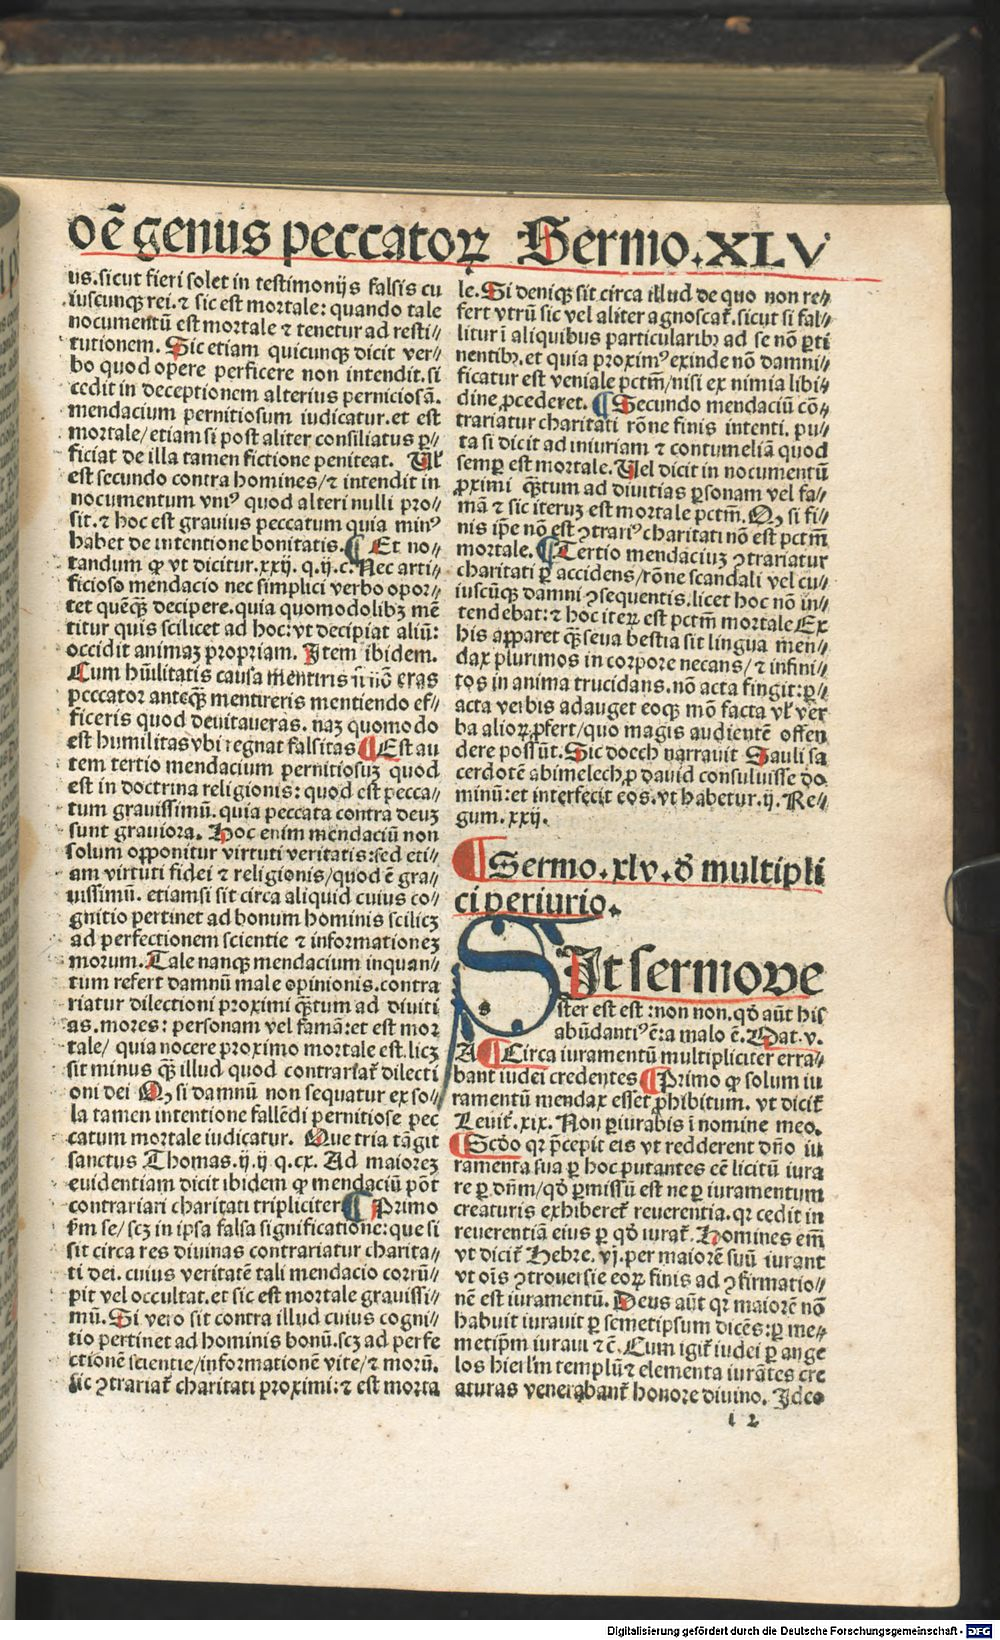 oē genus peccatoꝝ Sermo.XLV
us.sicut fieri solet in testimonijs falsis cu
iuscunqꝫ rei.⁊ sic est mortale: quando tale
nocumentū est mortale ⁊ tenetur ad resti⸗
tutionem. Sic etiam quicunqꝫ dicit ver⸗
bo quod opere perficere non intendit.si
cedit in deceptionem alterius perniciosā.
mendacium pernitiosum iudicatur.et est
mortale/etiam si post aliter consiliatus ꝑ⸗
ficiat de illa tamen fictione peniteat. Ul̕
est secundo contra homines/⁊ intendit in
nocumentum vniꝰ quod alteri nulli pro⸗
sit.⁊ hoc est grauius peccatum quia minꝰ
habet de intentione bonitatis. ¶ Et no⸗
tandum ꝙ vt dicitur.xxij. q.ij.c. Nec arti⸗
ficioso mendacio nec simplici verbo opor⸗
tet quēqꝫ̄ decipere.quia quomodolibꝫ mē
titur quis scilicet ad hoc: vt decipiat aliū:
occidit animaꝫ propriam. Item ibidem.
Cum hūilitatis causa mentiris si nō eras
peccator anteqꝫ̄ mentireris mentiendo ef⸗
ficeris quod deuitaueras. naꝫ quomodo
est humilitas vbi regnat falsitas ¶ Est au
tem tertio mendacium pernitiosuꝫ quod
est in doctrina religionis: quod est pecca⸗
tum grauissimū. quia peccata contra deuꝫ
sunt grauiora. Hoc enim mendaciū non
solum opponitur virtuti veritatis:sed eti⸗
am virtuti fidei ⁊ religionis/quod ē gra⸗
uissimū. etiamsi sit circa aliquid cuius co⸗
gnitio pertinet ad bonum hominis scilicꝫ
ad perfectionem scientie ⁊ informationeꝫ
morum. Tale nanqꝫ mendacium inquan⸗
tum refert damnū male opinionis.contra
riatur dilectioni proximi qꝫ̄tum ad diuiti
as.mores: personam vel famā:et est mor
tale/ quia nocere proximo mortale est.licꝫ
sit minus qꝫ̄ illud quod contrariat̄ dilecti
oni dei Qꝫ si damnū non sequatur ex so⸗
la tamen intentione fallēdi pernitiose pec
catum mortale iudicatur. Que tria tāgit
sanctus Thomas.ij.ij q.cx. Ad maioreꝫ
euidentiam dicit ibidem ꝙ mendaciū pōt
contrariari charitati tripliciter ¶ Primo
ẜm se/scꝫ in ipsa falsa significatione:que si
sit circa res diuinas contrariatur charita⸗
ti dei. cuius veritatē tali mendacio corrū⸗
pit vel occultat.et sic est mortale grauissi⸗
mū. Si vero sit contra illud cuius cogni⸗
tio pertinet ad hominis bonū.scꝫ ad perfe
ctionē scientie/informationē vite/⁊ morū.
sic ꝯtrariat̄ charitati proximi:⁊ est morta
le. Si deniqꝫ sit circa illud de quo non re⸗
fert vtrū sic vel aliter agnoscat̄.sicut si fal⸗
litur ī aliquibus particularibꝫ ad se nō ꝑti
nentibꝫ.et quia proximꝰ exinde nō damni⸗
ficatur est veniale pctm̄/nisi ex nimia libi⸗
dine ꝓcederet. ¶ Secundo mendaciū cō⸗
trariatur charitati rōne finis intenti. pu⸗
ta si dicit ad iniuriam ⁊ contumeliā quod
semꝑ est mortale. Uel dicit in nocumentū
ꝓximi qꝫ̄tum ad diuitias ꝑsonam vel fa⸗
mā ⁊ sic iteruꝫ est mortale pctm̄. Qꝫ si fi⸗
nis ip̄e nō est ꝯtrariꝰ charitati nō est pctm̄
mortale. ¶ Tertio mendaciuꝫ ꝯtrariatur
charitati ꝑ accidens/rōne scandali vel cu⸗
iuscūqꝫ damni ꝯsequentis.licet hoc nō in⸗
tendebat: ⁊ hoc iteꝝ est pctm̄ mortale Ex
his apparet qꝫ̄ seua bestia sit lingua men⸗
dax plurimos in corpore necans/ ⁊ infini⸗
tos in anima trucidans.nō acta fingit:ꝑ⸗
acta verbis adauget eoqꝫ mō facta vl̕ ver
ba alioꝝ ꝓfert/quo magis audientē offen
dere possūt. Sic doech narrauit Sauli sa
cerdotē abimelech ꝓ dauid consuluisse do
minū:et interfecit eos.vt habetur.ij. Re⸗
gum.xxij.
¶ Sermo.xlv.ð multipli
ci periurio.
SIt sermo ve
ster est est :non non. qð aūt his
abūdantiꝰ ē:a malo ē. Mat.v.
A ¶ Circa iuramentū multipliciter erra⸗
bant iudei credentes ¶ Primo ꝙ solum iu
ramentū mendax esset ꝓhibitum. vt dicit̄
Leuit̄.xix. Non ꝑiurabis ī nomine meo.
¶ Scd̄o qꝛ p̄cepit eis vt redderent dn̄o iu
ramenta sua ꝑ hoc putantes eē licitū iura
re ꝑ dn̄m/qð ꝑmissū est ne ꝑ iuramentum
creaturis exhiberet̄ reuerentia.qꝛ cedit in
reuerentiā eius ꝑ qð iurat̄. Homines em̄
vt dicit̄ Hebre. vj.per maiorē suū iurant
vt oīs ꝯtrouersie eoꝝ finis ad ꝯfirmatio⸗
nē est iuramentū. Deus aūt qꝛ maiorē nō
habuit iurauit ꝑ semetipsum dicēs:ꝑ me⸗
metip̄m iuraui ⁊ c̄. Cum igit̄ iudei ꝑ ange
los hierl̄m templū ⁊ elementa iurātes cre
aturas venerabant̄ honore diuino. Ideo
l 2
Digitalisierung gefördert durch die Deutsche Forschungsgemeinschaft - DFG